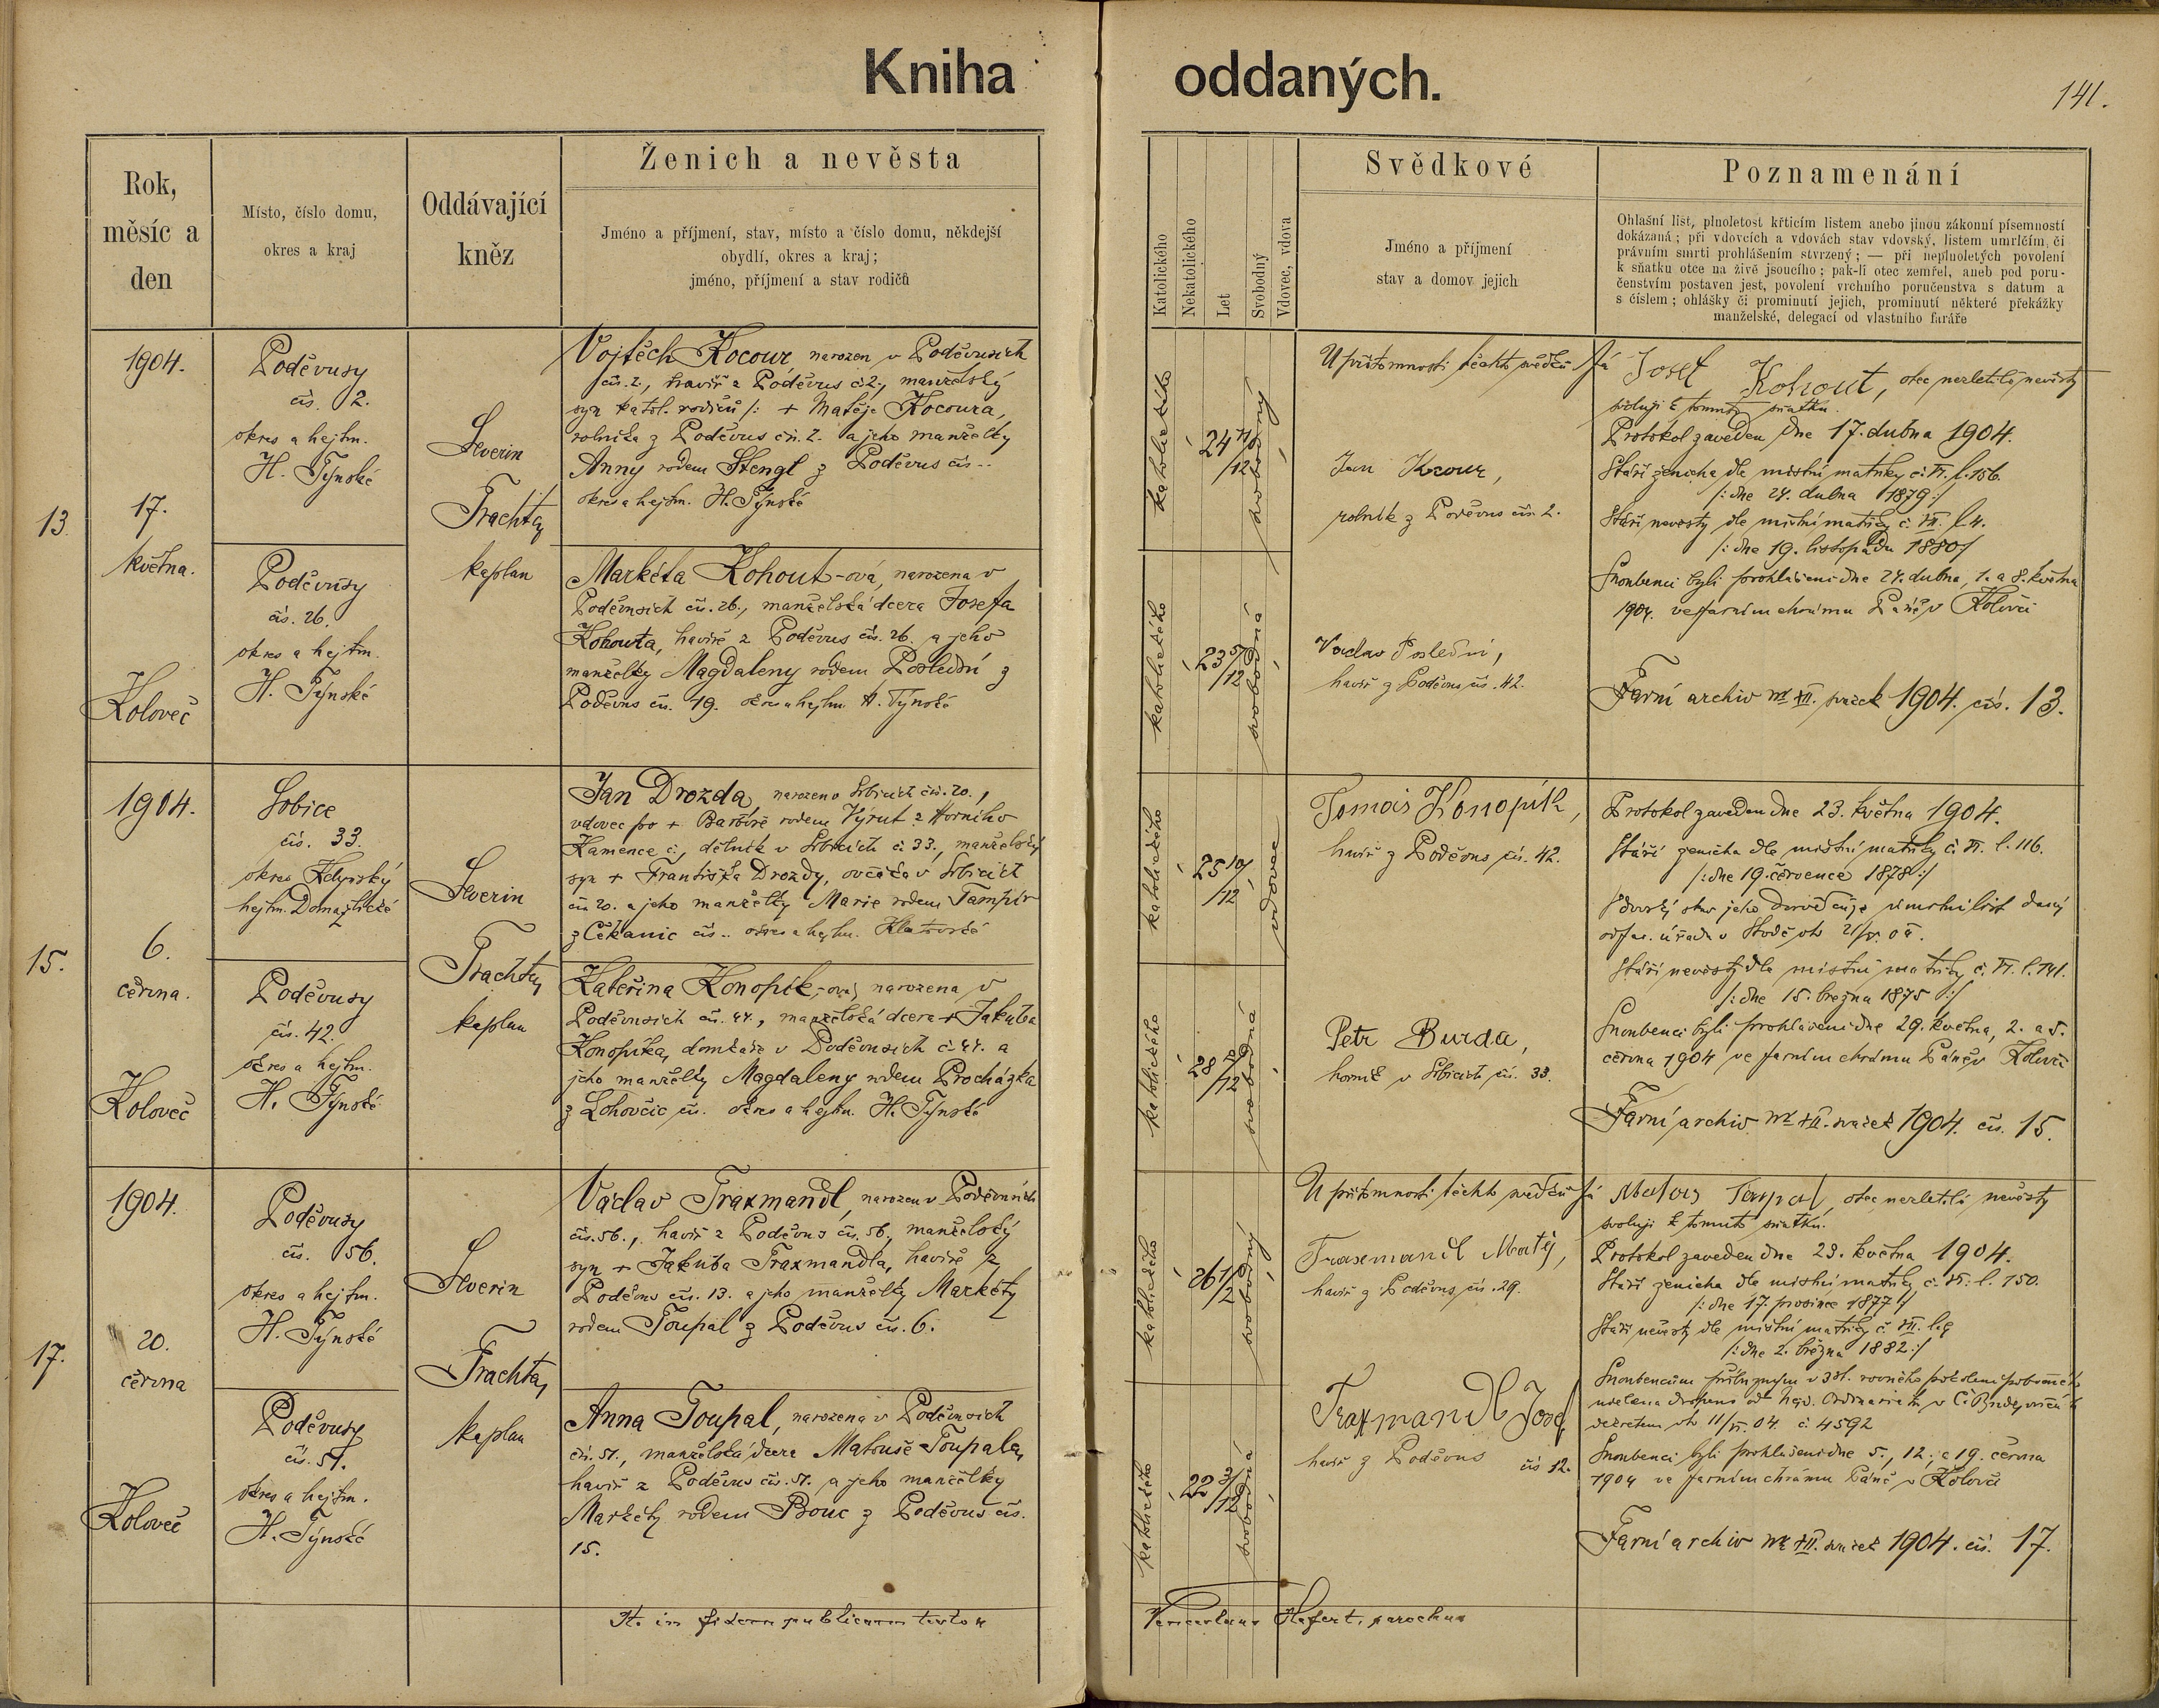 Kniha oddaných.
141.
Rok,
měsíc a
den
Místo, číslo domu,
okres a kraj
Oddávající
kněz
Ženich a nevěsta
Jméno a příjmení, stav, místo a číslo domu, někdejší
obydlí, okres a kraj;
jméno, příjmení a stav rodičů
Katolického
Nekatolického
Let
Svobodný
Vdovec, vdova
Svědkové
Jméno a příjmení
stav a domov jejich
Poznamenání
Ohlašní list, plnoletost křticím listem anebo jinou zákonní písemností
dokázaná; při vdovcích a vdovách stav vdovský, listem umrlčím, či
právním smrti prohlášením stvrzený; — při neplnoletých povolení
k sňatku otce na živě jsoucího; pak-li otec zemřel, aneb pod poru-
čenstvím postaven jest, povolení vrchního poručenstva s datum a
s číslem; ohlášky či prominutí jejich, prominutí některé překážky
manželské, delegací od vlastního faráře
13.
1904.
17.
května.
Koloveč
Poděvusy
čís. 2.
okres a hejtm.
H. Týnské
Poděvusy
čís. 26.
okres a hejtm.
H. Týnské
Severin
Trachta,
kaplan
Vojtěch Kocour, narozen v Poděvusích
čís. 2., havíř z Poděvus č. 2., manželský
syn katol. rodičů /: + Matěje Kocoura,
rolníka z Poděvus čís. 2. a jeho manželky
Anny rodem Stengl z Poděvus čís..
okres a hejtm. H. Týnské
Markéta Kohout-ová, narozena v
Poděvusích čís. 26., manželská dcera Josefa
Kohouta, havíře z Poděvus čís. 26. a jeho
manželky Magdaleny rodem Poslední z
Poděvus čís. 19. okres a hejtm. H. Týnské
katolického
24 11/12
svobodný
katolického
23 5/12
svobodná
U přítomnosti těchto svědků
Jan Kocour,
rolník z Poděvus čís. 2.
Václav Poslední,
havíř z Poděvus čís. 42.
Já Josef Kohout, otec nezletilé nevěsty
svoluji k tomuto sňatku.
Protokol zaveden dne 17. dubna 1904.
Stáří ženicha dle místní matriky č. VI. l. 156.
/: dne 24. dubna 1879 :/
Stáří nevěsty dle místní matriky č. VII. l. 4.
/: dne 19. listopadu 1880 :/
Snoubenci byli prohlášeni dne 24. dubna, 1. a 8. května
1904. ve farním chrámu Páně v Kolovči
Farní archiv svazek 1904. čís. 13.
15.
1904.
6.
června.
Koloveč
Srbice
čís. 33.
okres Kdyňský
hejtm. Domažlické
Poděvusy
čís. 42.
okres a hejtm.
H. Týnské
Severin
Trachta,
kaplan
Jan Drozda, narozen v Srbicích čís. 20.,
vdovec po + Barboře rodem Výrut z Horního
Kamence č., dělník v Srbicích č. 33., manželský
syn + Františka Drozdy, ovčáka v Srbicích
čís. 20. a jeho manželky Marie rodem Tampír
z Čekanic čís.. okres a hejtm. Klatovské
Kateřina Konopík-ová, narozena v
Poděvusích čís. 44., manželská dcera + Jakuba
Konopíka, domkáře v Poděvusích č. 44. a
jeho manželky Magdaleny rodem Procházka
z Lohovčic čís. okres a hejtm. H. Týnské
katolického
25 10/12
vdovec
katolického
svobodná
Tomáš Konopík,
havíř z Poděvus čís. 42.
Petr Burda,
horník v Srbicích čís. 33.
Protokol zaveden dne 23. května 1904.
Stáří ženicha dle místní matriky č. VI. l. 116.
/: dne 19. července 1878 :/
Vdovský stav jeho dosvědčuje úmrtní list daný
od far. úřadu v Stodě
Stáří nevěsty dle místní matriky č. VI. l. 141.
/: dne 15. března 1875 :/
Snoubenci byli prohlášeni dne 29. května, 2. a 5.
června 1904 ve farním chrámu Páně v Kolovči
Farní archiv svazek 1904. čís. 15.
17.
1904.
20.
června
Koloveč
Poděvusy
čís. 56.
okres a hejtm.
H. Týnské
Poděvusy
čís. 51.
okres a hejtm.
H. Týnské
Severin
Trachta,
kaplan
Václav Traxmandl, narozen v Poděvusích
čís. 56., havíř z Poděvus čís. 56., manželský
syn + Jakuba Traxmandla, havíře z
Poděvus čís. 13. a jeho manželky Markéty
rodem Toupal z Poděvus čís. 6.
Anna Toupal, narozena v Poděvusích
čís. 51., manželská dcera Matouše Toupala,
havíř z Poděvus čís. 51. a jeho manželky
Markéty rodem Bouc z Poděvus čís.
15.
katolického
26 1/2
svobodný
katolického
22 3/12
svobodná
U přítomnosti těchto svědků
Traxmandl Matěj,
havíř z Poděvus čís. 29.
Traxmandl Josef
havíř z Poděvus čís 12.
Já Matouš Toupal, otec nezletilé nevěsty
svoluji k tomuto sňatku.
Protokol zaveden dne 23. května 1904.
Stáří ženicha dle místní matriky č. VI. l. 150.
/: dne 17. prosince 1877 :/
Stáří nevěsty dle místní matriky č. VII. l. 9
/: dne 2. března 1882 :/
Snoubencům příbuzným v 3 st. rovného pokolení pobočného
udělena dispens od Nejd. Ordinariátu v Č. Budějovicích
dekretem dto 11/VI. 04 č 4592
Snoubenci byli prohlášeni dne 5., 12. a 19. června
1904 ve farním chrámu Páně v Kolovči
Farní archiv svazek 1904. čís. 17.
It. in fidem publicam testor Venceslaus Hefert, parochus